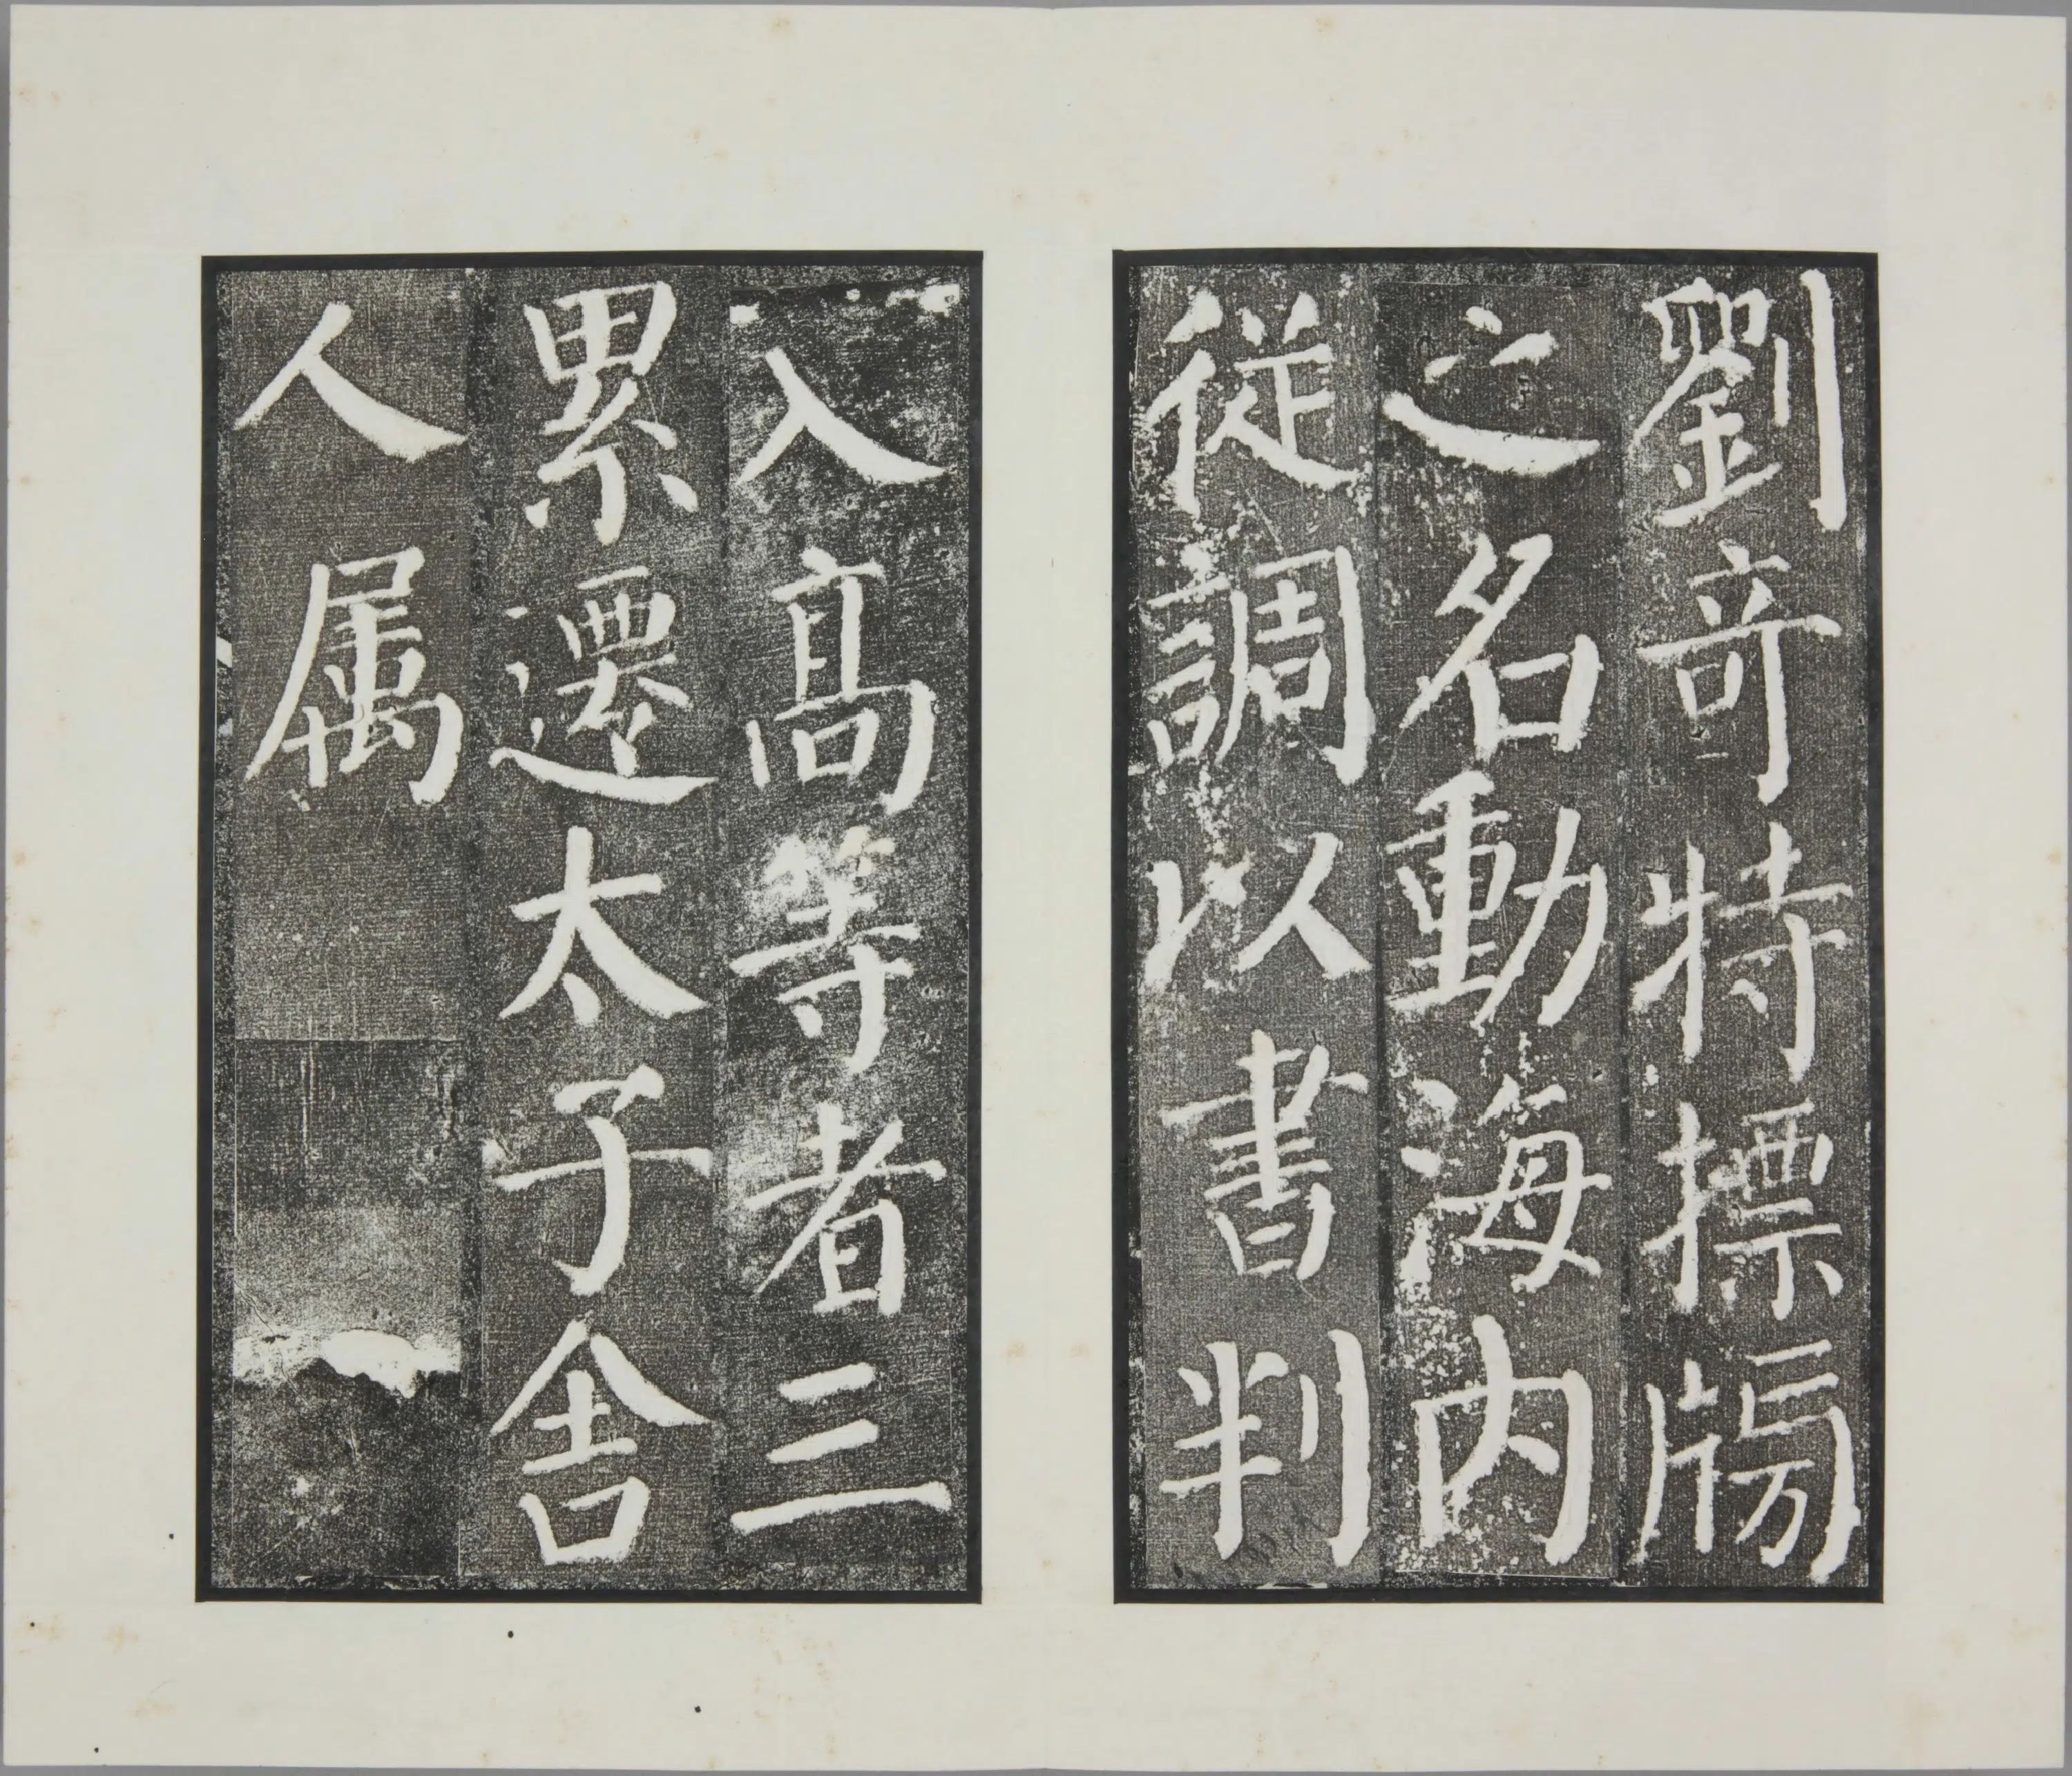 劉奇特摽牓
之名動海内
從調以書判
入髙等者三
累遷太子舍
人属